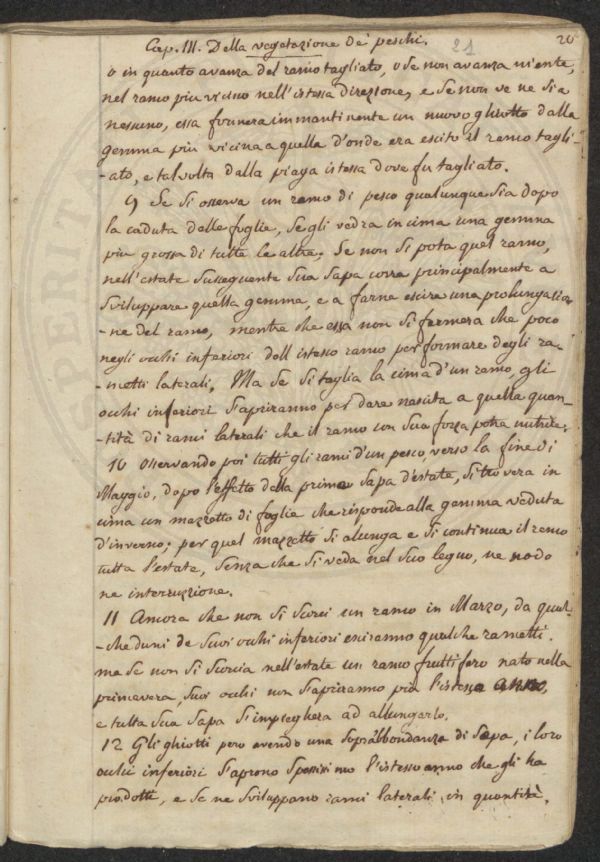 Cap. III. Della vegetazione de' peschi. 21 20
o in quanto avanza del ramo tagliato, o se non avanza niente,
nel ramo piu vicino nell'istessa direzione, e se non ve ne sia
nessuno, essa formera immantinente un nuovo ghiotto dalla
gemma piu vicina a quella d'onde era escito il ramo tagli-
-ato, e talvolta dalla piaga istessa dove fu tagliato.
9 Se si osserva un ramo di pesco qualunque sia dopo
la caduta delle foglie, se gli vedra in cima una gemma
piu grossa di tutte le altre. Se non si pota quel ramo,
nell'estate susseguente sua sapa corra principalmente a
sviluppare quella gemma, e a farne escire una prolungazio-
-ne del ramo, mentre che essa non si fermera che poco
negli occhi inferiori dell istesso ramo per formare degli ra-
-motti laterali. Ma se si taglia la cima d'un ramo, gli
occhi inferiori s'apriranno per dare nascita a quella quan-
-tità di rami laterali che il ramo con sua forza potra nutrire.
10 Osservando poi tutti gli rami d'un pesco, verso la fine di
Maggio, dopo l'effetto della prima sapa d'estate, si trovera in
cima un mazzotto di foglie che risponde alla gemma veduta
d'inverno; per quel mazzetto si alunga e si continua il ramo
tutta l'estate, senza che si veda nel suo legno, ne nodo
ne interruzzione.
11 Ancora che non si scorci un ramo in Marzo, da qual-
-cheduni de suoi occhi inferiori esciranno qualche rametti.
ma se non si scorcia nell'estate un ramo fruttifero nato nella
primavera, suoi occhi non s'apriranno piu l'istesso anno,
e tutta sua sapa s'impieghera ad allungarlo.
12 Gli ghiotti pero avendo una soprabbondanza di sapa, i loro
occhi inferiori s'aprono spessissimo l'istesso anno che gli ha
prodotti, e se ne sviluppano rami laterali in quantità.